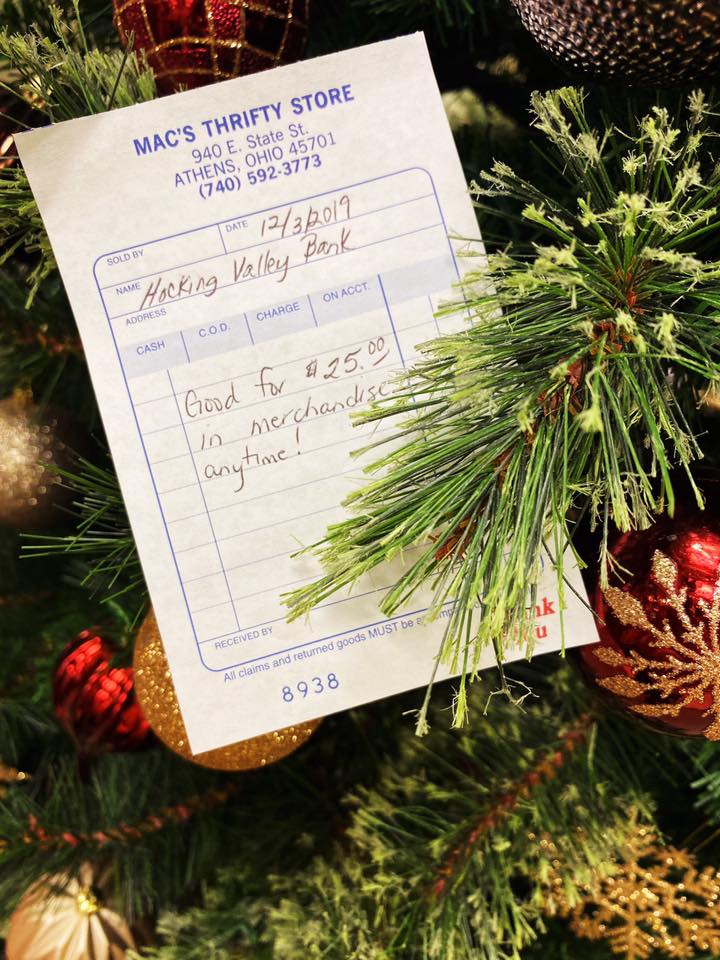 MAC'S THRIFTY STORE
940 E. State St.
ATHENS, OHIO 45701
(740) 592-3773
SOLD BY DATE 12/3/2019
NAME Hocking Valley Bank
ADDRESS
CASH C.O.D. CHARGE ON ACCT.
Good for $25.00
in merchandise
anytime!
RECEIVED BY
All claims and returned goods MUST be
8938